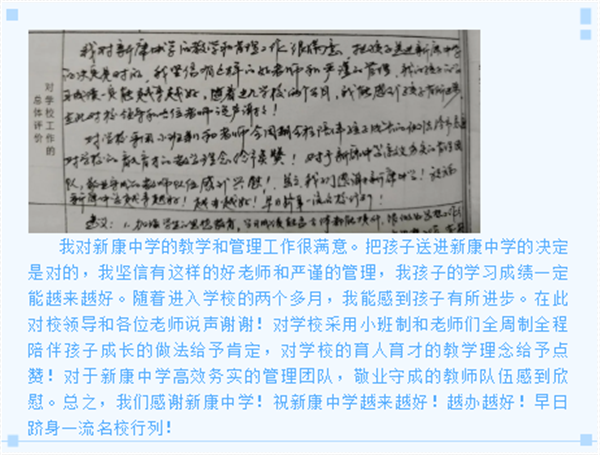 对学校工作的
总体评价
我对新康中学的教学和管理工作很满意。把孩子送进新康中学
的决定是对的，我坚信有这样的好老师和严谨的管理，我的孩子的学
习成绩一定能越来越好。随着进入学校的两个多月，我能感到孩子有所进步。
在此对校领导和各位老师说声谢谢！
对学校采用小班制和老师全周制全程陪伴孩子成长的做法给予肯定
对学校的育人育才的教学理念给予点赞！对于新康中学高效务实的管理团
队，敬业守成的教师队伍感到欣慰！总之，我们感谢新康中学！祝福
新康中学越来越好！越办越好！早日跻身一流名校行列！
建议：1.加强学生的思想教育，
我对新康中学的教学和管理工作很满意。把孩子送进新康中学的决定
是对的，我坚信有这样的好老师和严谨的管理，我孩子的学习成绩一定
能越来越好。随着进入学校的两个多月，我能感到孩子有所进步。在此
对校领导和各位老师说声谢谢！对学校采用小班制和老师们全周制全程
陪伴孩子成长的做法给予肯定，对学校的育人育才的教学理念给予点
赞！对于新康中学高效务实的管理团队，敬业守成的教师队伍感到欣
慰。总之，我们感谢新康中学！祝新康中学越来越好！越办越好！早日
跻身一流名校行列！